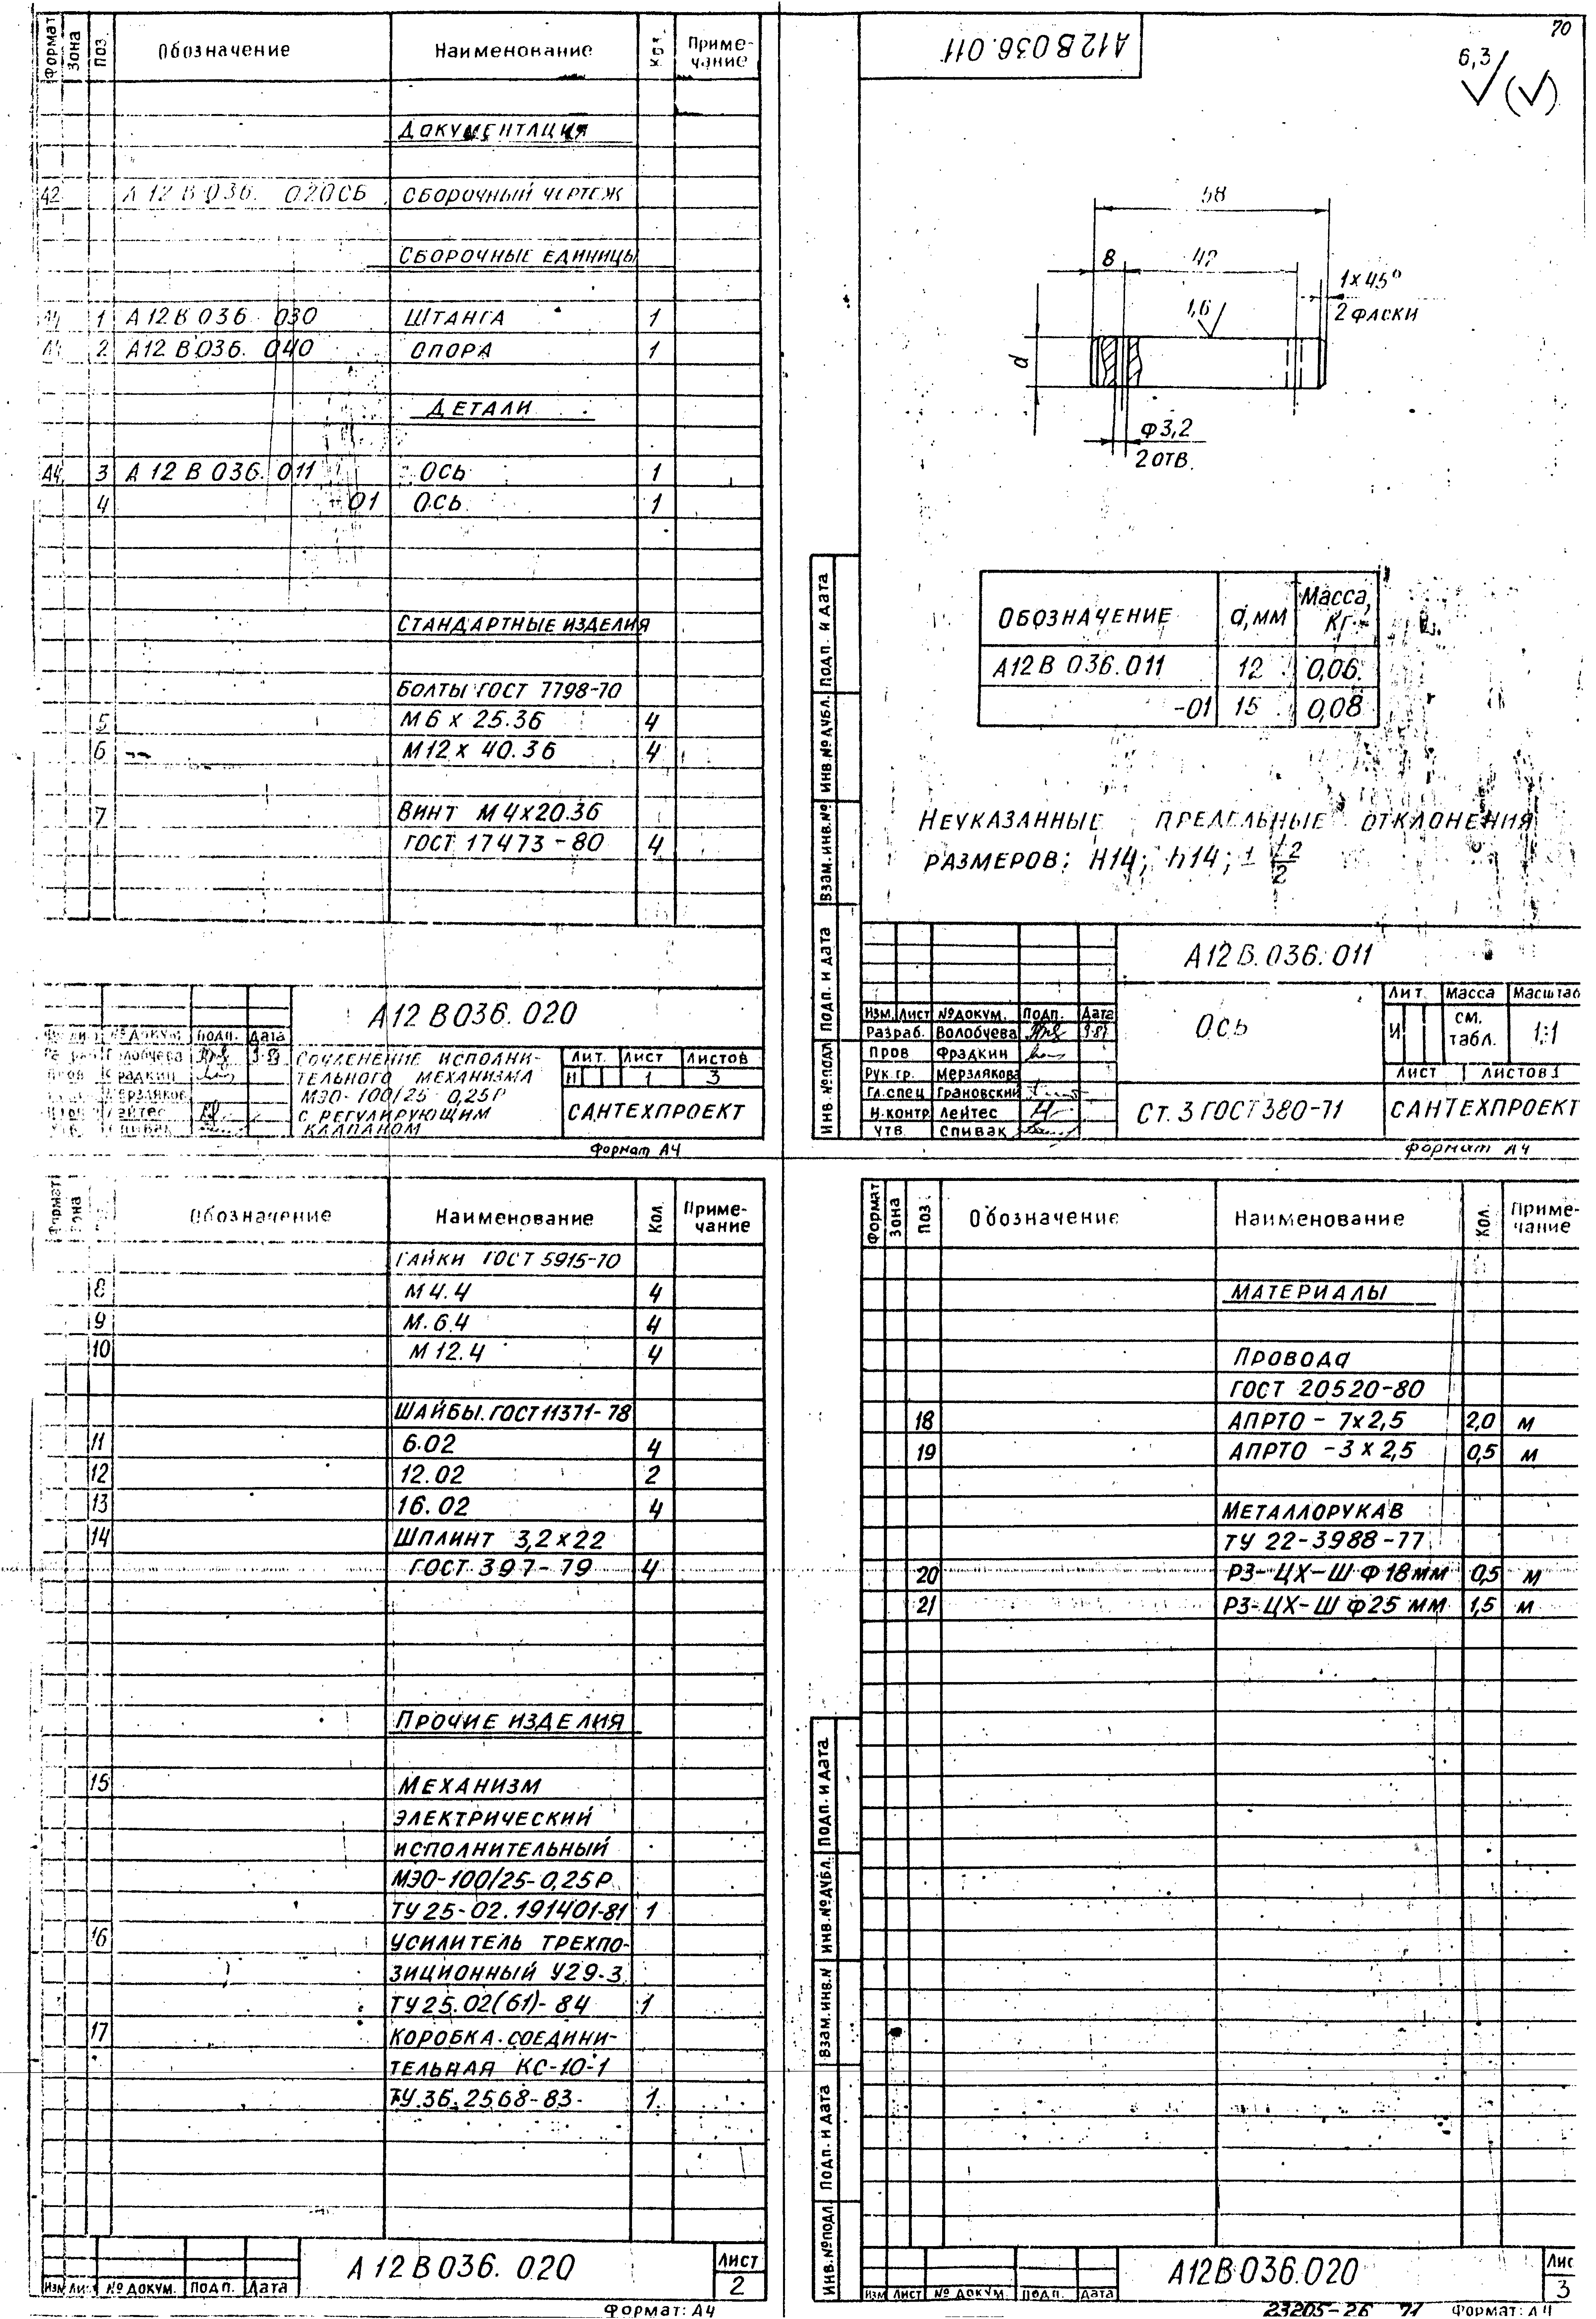 Формат Зона Поз. Обозначение Наименование Кол. Приме-
чание
Документация
А2 А12В036. 020СБ Сборочный чертеж
Сборочные единицы
А4 1 А12В036. 030 Штанга 1
А4 2 А12В036. 040 Опора 1
Детали
А4 3 А12В036. 011 Ось 1
4 -01 Ось 1
Стандартные изделия
Болты ГОСТ 7798-70
5 М6 х 25.36 4
6 М12 х 40.36 4
7 Винт М4х20.36
ГОСТ 17473-80 4
А12В036.020
№ докум. Подп. Дата
Волобуева
Фрадкин
Мерзлякова
Лейтес
Спивак
Сочленение исполни-
тельного механизма
МЭО-100/25-0,25Р
с регулирующим
клапаном
Лит. Лист Листов
И 1 3
САНТЕХПРОЕКТ
Формат А4
70
А12В036.011
6,3 (√)
58
8 42
1х45°
2 фаски
1,6
d
Ф3,2
2 отв.
Обозначение d, мм Масса, кг
А12В036.011 12 0,06
-01 15 0,08
Неуказанные предельные отклонения
размеров: Н14; h14; ±
Инв. № подл. Подп. и дата Взам. инв. № Инв. № дубл. Подп. и дата
А12В.036.011
Изм. Лист № докум. Подп. Дата
Разраб. Волобуева
Пров Фрадкин
Рук. гр. Мерзлякова
Гл. спец Грановский
Н. контр Лейтес
Утв. Спивак
Ось
Лит. Масса Масштаб
И см. табл. 1:1
Лист Листов 1
Ст. 3 ГОСТ 380-71
САНТЕХПРОЕКТ
Формат А4
Формат Зона Обозначение Наименование Кол. Приме-
чание
Гайки ГОСТ 5915-70
8 М4.4 4
9 М.6.4 4
10 М12.4 4
Шайбы ГОСТ 11371-78
11 6.02 4
12 12.02 2
13 16.02 4
14 Шплинт 3,2х22
ГОСТ 397-79 4
Прочие изделия
15 Механизм
электрический
исполнительный
МЭО-100/25-0,25Р
ТУ 25-02.191401-81 1
16 Усилитель трехпо-
зиционный У29-3
ТУ 25.02(61)-84 1
17 Коробка соедини-
тельная КС-10-1
ТУ.36.2568-83 1
А12В036.020
Изм Лист № докум. Подп. Дата
Лист
2
Формат: А4
Формат Зона Поз Обозначение Наименование Кол. Приме-
чание
Материалы
Провода
ГОСТ 20520-80
18 АПРТО - 7х2,5 2,0 м
19 АПРТО - 3х2,5 0,5 м
Металлорукав
ТУ 22-3988-77
20 РЗ-ЦХ-Ш Ф18 мм 0,5 м
21 РЗ-ЦХ-Ш Ф25 мм 1,5 м
Инв. № подл. Подп. и дата Взам. инв. № Инв. № дубл. Подп. и дата
А12В036.020
Изм Лист № докум. Подп. Дата
Лис
3
23205-26 71 Формат: А4